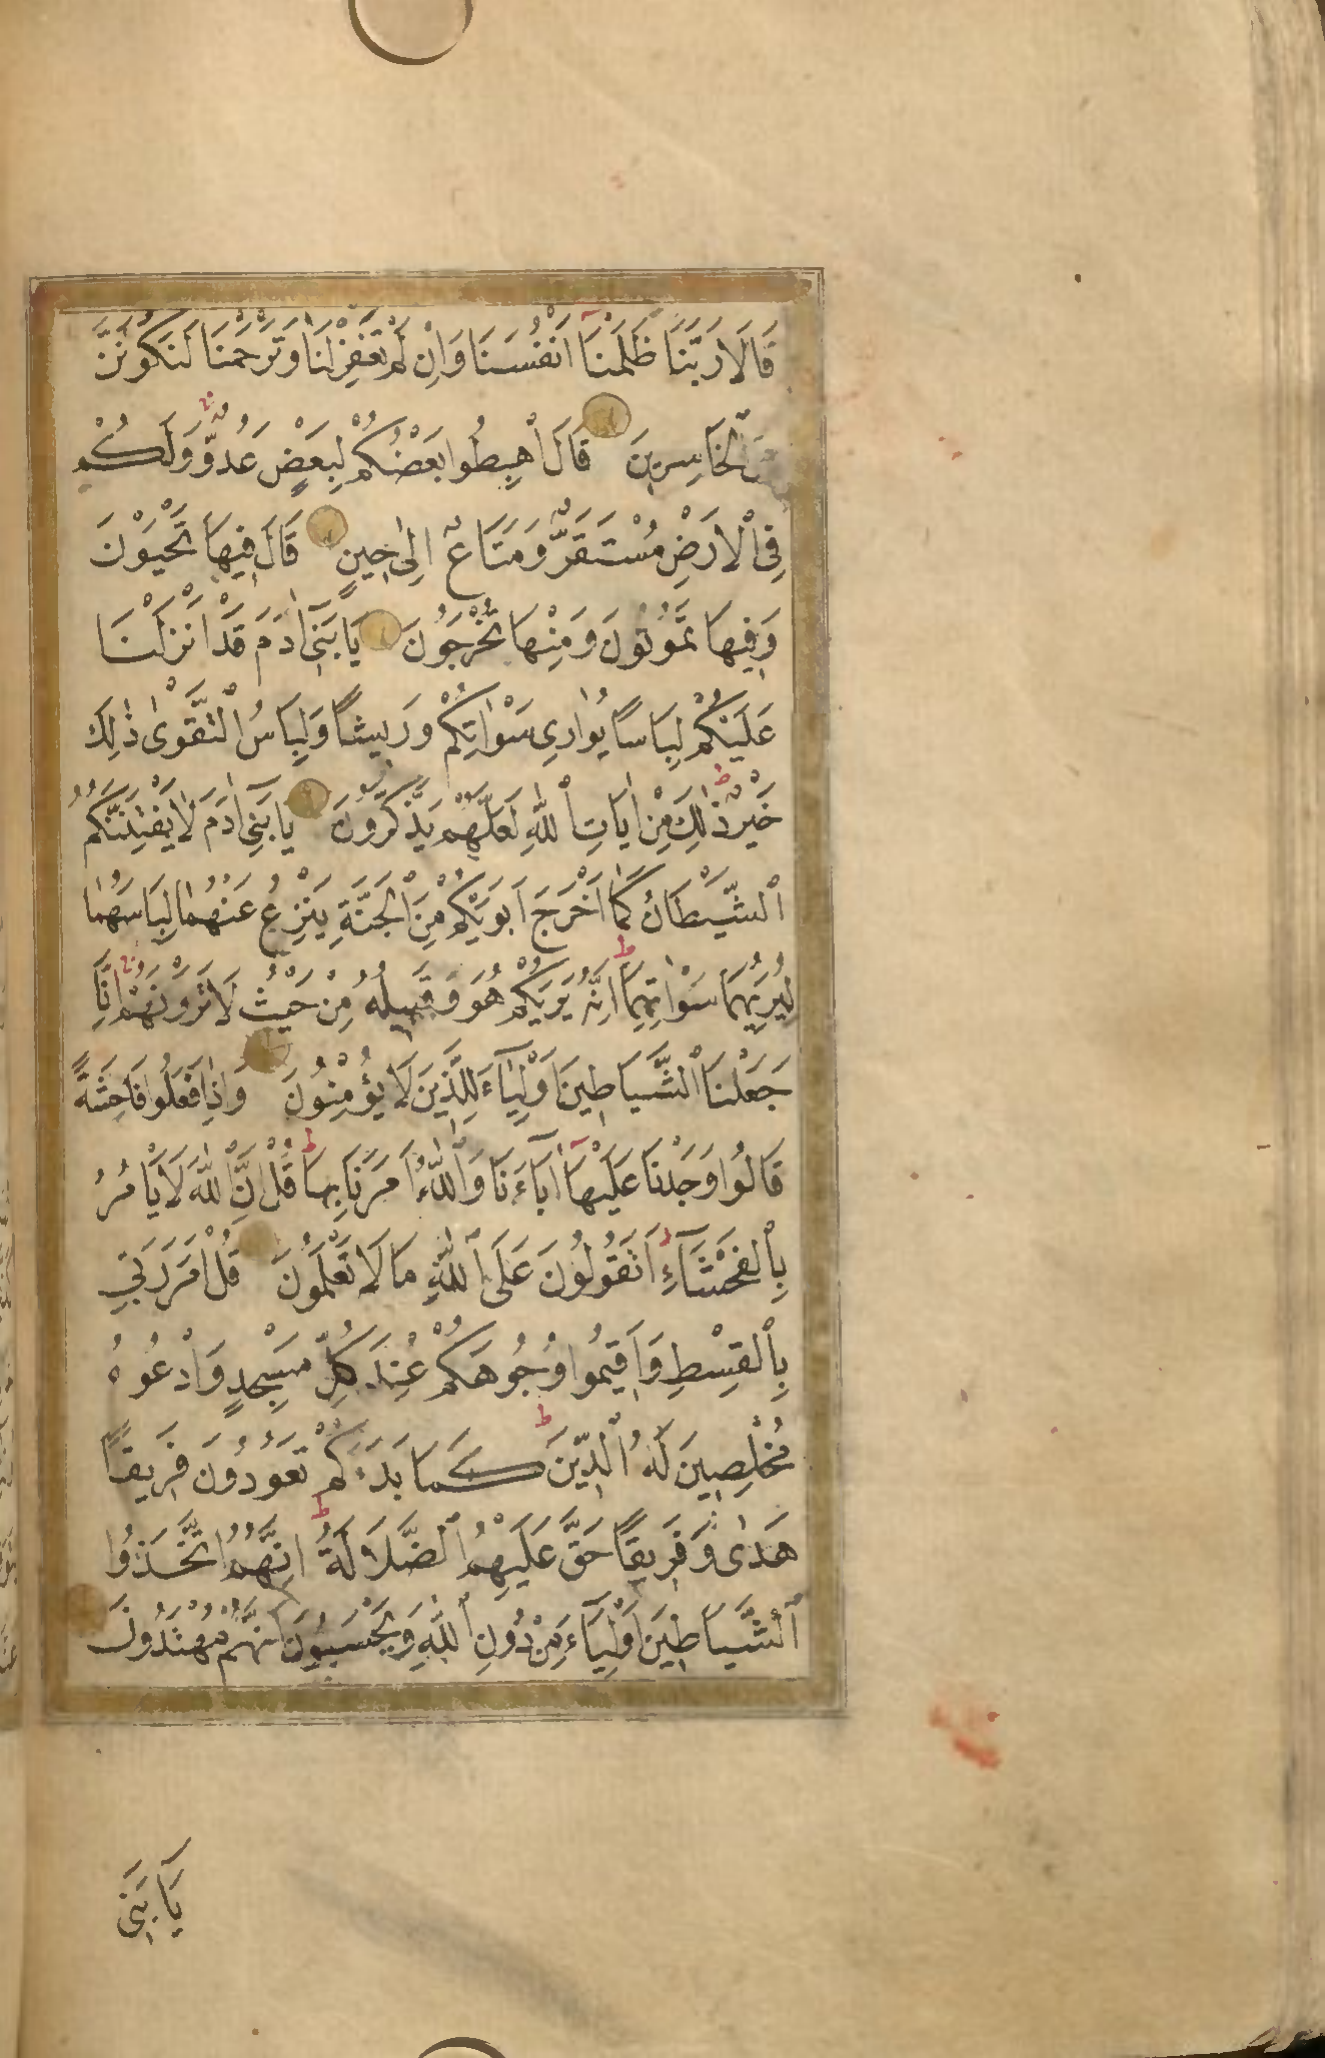 قَالَا رَبَّنَا ظَلَمْنَا اَنْفُسَنَا وَاِنْ لَمْ تَغْفِرْ لَنَا وَتَرْحَمْنَا لَنَكُونَنَّ
مِنَ الْخَاسِرِينَ قَالَ اهْبِطُوا بَعْضُكُمْ لِبَعْضٍ عَدُوٌّ وَلَكُمْ
فِي الْاَرْضِ مُسْتَقَرٌّ وَمَتَاعٌ اِلٰى حِينٍ قَالَ فِيهَا تَحْيَوْنَ
وَفِيهَا تَمُوتُونَ وَمِنْهَا تُخْرَجُونَ يَا بَنِٓي اٰدَمَ قَدْ اَنْزَلْنَا
عَلَيْكُمْ لِبَاسًا يُوَارِي سَوْاٰتِكُمْ وَرِيشًا وَلِبَاسُ التَّقْوٰى ذٰلِكَ
خَيْرٌ ذٰلِكَ مِنْ اٰيَاتِ اللّٰهِ لَعَلَّهُمْ يَذَّكَّرُونَ يَا بَنِٓي اٰدَمَ لَا يَفْتِنَنَّكُمُ
الشَّيْطَانُ كَمَٓا اَخْرَجَ اَبَوَيْكُمْ مِنَ الْجَنَّةِ يَنْزِعُ عَنْهُمَا لِبَاسَهُمَا
لِيُرِيَهُمَا سَوْاٰتِهِمَا اِنَّهُ يَرٰيكُمْ هُوَ وَقَبِيلُهُ مِنْ حَيْثُ لَا تَرَوْنَهُمْ اِنَّا
جَعَلْنَا الشَّيَاطِينَ اَوْلِيَٓاءَ لِلَّذِينَ لَا يُؤْمِنُونَ وَاِذَا فَعَلُوا فَاحِشَةً
قَالُوا وَجَدْنَا عَلَيْهَٓا اٰبَٓاءَنَا وَاللّٰهُ اَمَرَنَا بِهَا قُلْ اِنَّ اللّٰهَ لَا يَاْمُرُ
بِالْفَحْشَٓاءِ اَتَقُولُونَ عَلَى اللّٰهِ مَا لَا تَعْلَمُونَ قُلْ اَمَرَ رَبِّي
بِالْقِسْطِ وَاَقِيمُوا وُجُوهَكُمْ عِنْدَ كُلِّ مَسْجِدٍ وَادْعُوهُ
مُخْلِصِينَ لَهُ الدِّينَ كَمَا بَدَءَكُمْ تَعُودُونَ فَرِيقًا
هَدٰى وَفَرِيقًا حَقَّ عَلَيْهِمُ الضَّلَالَةُ اِنَّهُمُ اتَّخَذُوا
الشَّيَاطِينَ اَوْلِيَٓاءَ مِنْ دُونِ اللّٰهِ وَيَحْسَبُونَ اَنَّهُمْ مُهْتَدُونَ
يَا بَنِي